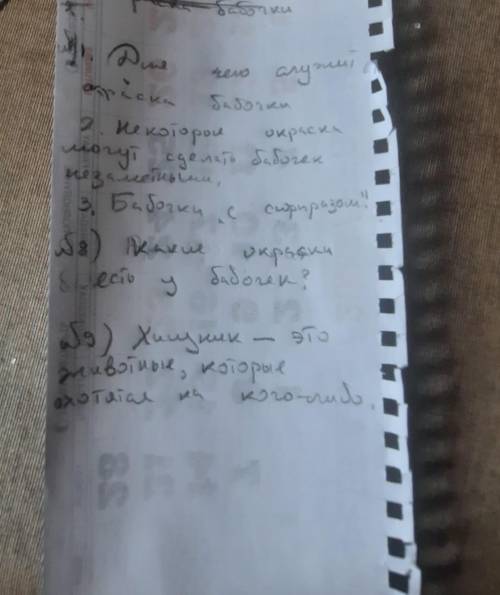 бабочки
1. Для чего служит
окраска бабочки
2. Некоторые окраска
могут сделать бабочек
незаметными.
3. Бабочки „с сюрпризом".
№8) Какие окраски
есть у бабочек?
№9) Хищник — это
животные, которые
охотятся на кого-либо.